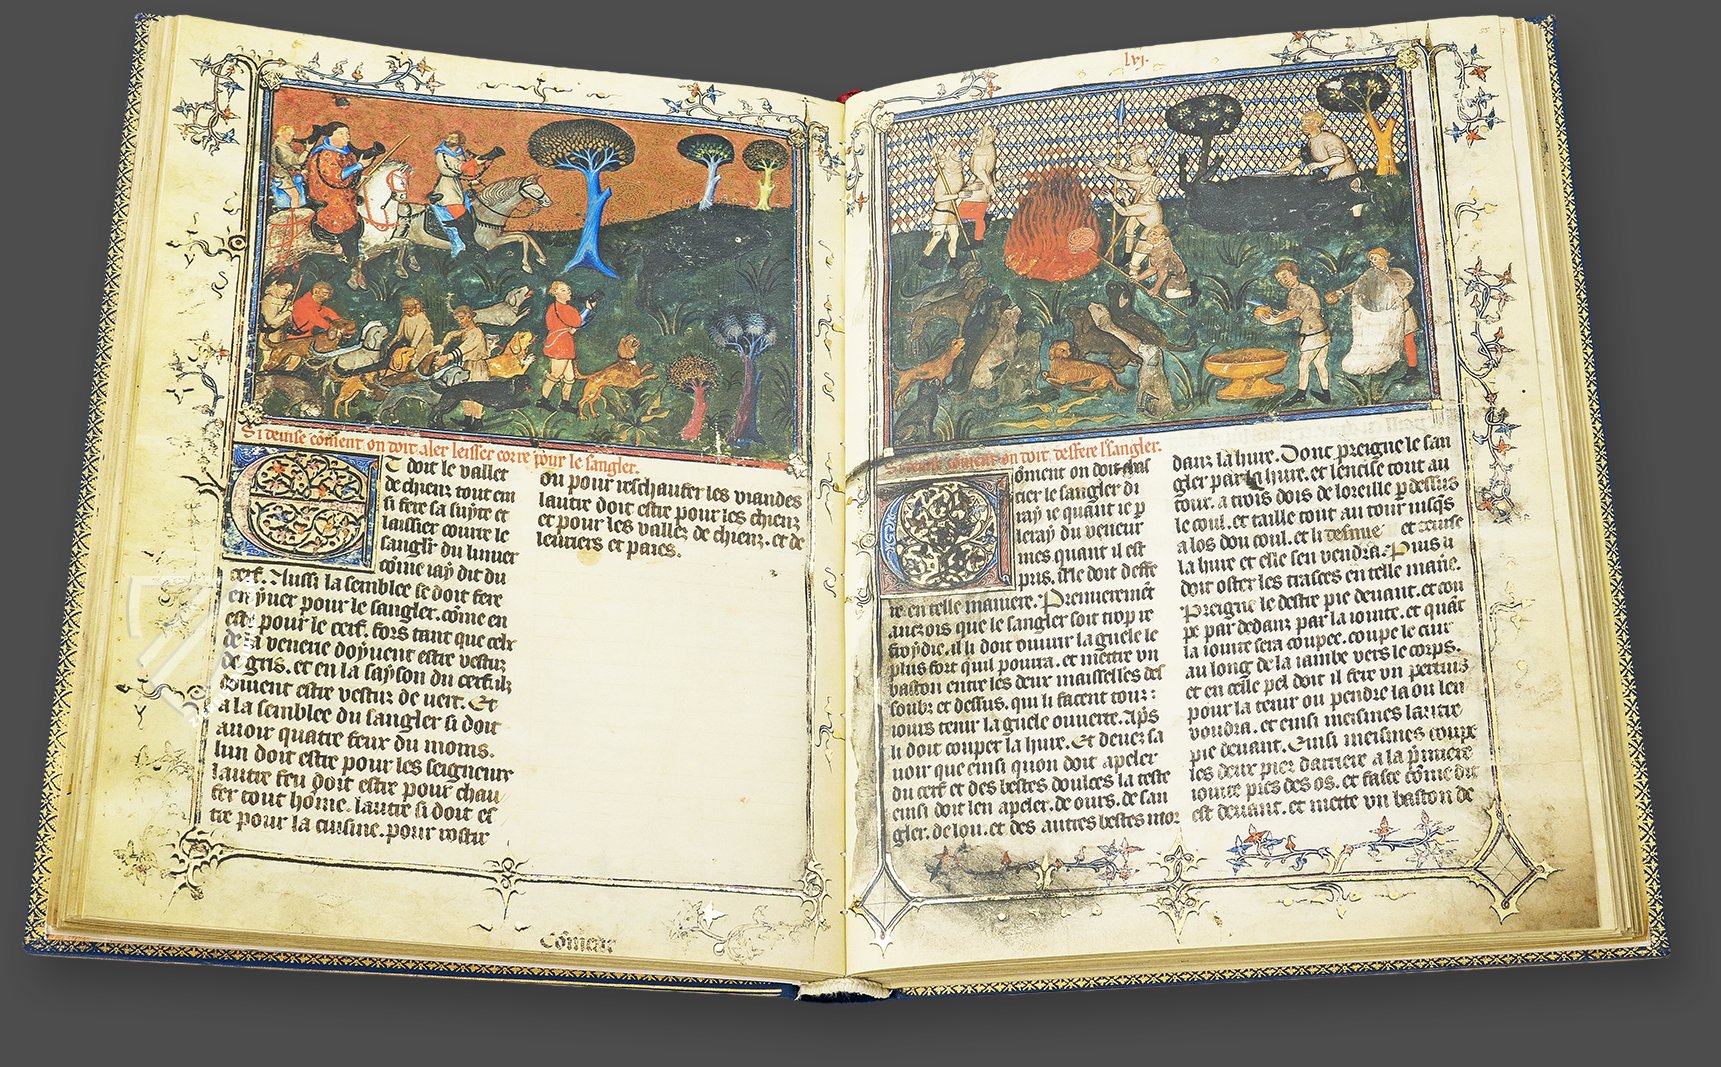 Si deuise coment on doit aler leissier corre pour le sangler.
Et doit le vallet
de chienz tout ein
si fere sa suyte et
laissier courre le
sangler du limier
cõme iay dit du
cerf. Aussi la semblee se doit fere
en yuer pour le sangler. cõme en
este pour le cerf. fors tant que celz
de la venerie doyuent estre vestuz
de gris. et en la sayson du cerf ilz
doiuent estre vestuz de vert. Et
a la semblee du sangler si doit
auoir quatre feux du moins.
lun doit estre pour les seigneurs
lautre feu doit estre pour chau
fer tout hõme. lautre si doit es
tre pour la cuisine. pour rostir
ou pour reschaufer les viandes
lautre doit estre pour les chienz
et pour les vallez de chienz. et de
leuriers et paies.
Cõment
lvj.
Si deuise cõment on doit desfere le sangler.
Coment on doit chas
cier le sangler di
ray ie quant ie p
leray du veneur
mes quant il est
pris, il le doit deffe
re en telle maniere. Premierement
ancois que le sangler soit trop re
froydie. il li doit ouurir la guele le
plus fort quil pourra. et mettre vn
baston entre les deux maisselles de
soubz et dessus. qui li facent touz
iours tenir la guele ouuerte. Aps
li doit couper la hure. Et deuez sa
uoir que einsi quon doit apeler
du cerf et des bestes doulces la teste
einsi doit len apeler. de ours. de san
gler. de lou. et des autres bestes mor
danz la hure. Dont preigne le san
gler par la hure. et lencise tout au
tour. a trois dois de loreille p dessus
le coul. et taille tout au tour iusqs
a los dou coul. et li et
la hure et elle sen vendra. Puis li
doit oster les trasces en telle manie.
Preigne le destre pie deuant. et cou
pe par dedanz par la iointe. et quãt
la iointe sera coupee. coupe le cuir
au long de la iambe vers le corps.
et en celle pel doit il fere vn pertuis
pour la tenir ou pendre la ou len
voudra. et einsi meismes lautre
pie deuant. Einsi meismes coupe
les deux piez darriere a la pmiere
iointe pres des os. et face cõme dit
est deuant. et mette vn baston de